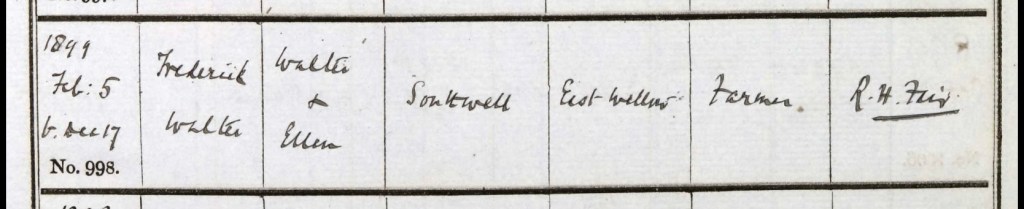 1899
Feb: 5
b. Dec 17
No. 998.
Frederick
Walter
Walter
+
Ellen
Southwell
East Wellow
Farmer
R. H. Fair